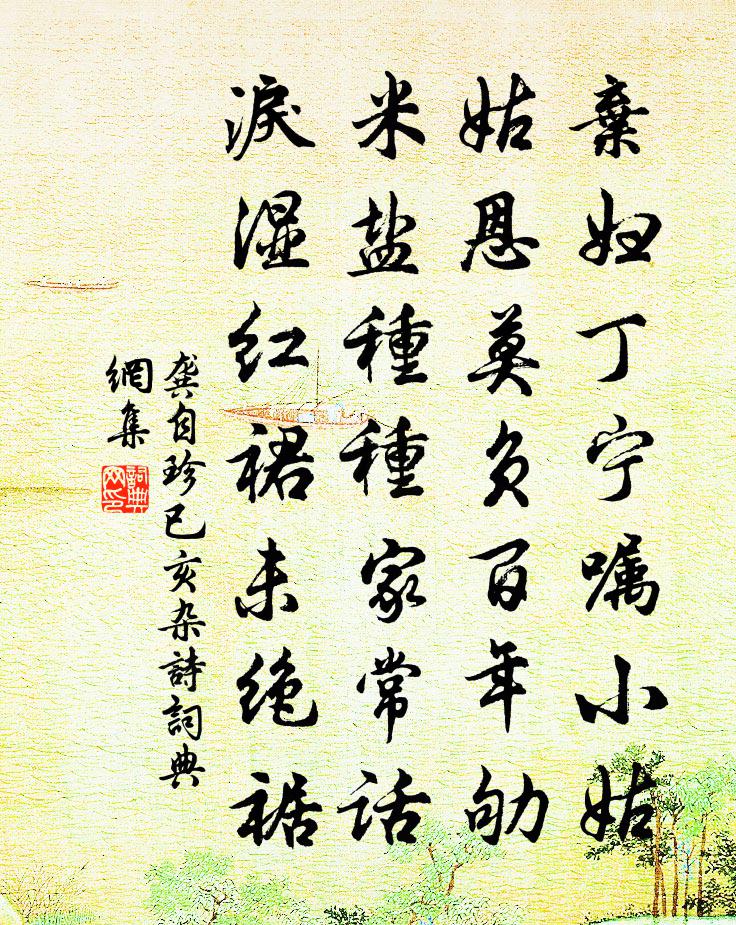 棄妇丁宁嘱小姑
姑恩莫负百年劬
米盐種種家常话
淚湿红裙未绝裾
龚自珍已亥杂詩詞典
網集
詞典
网印